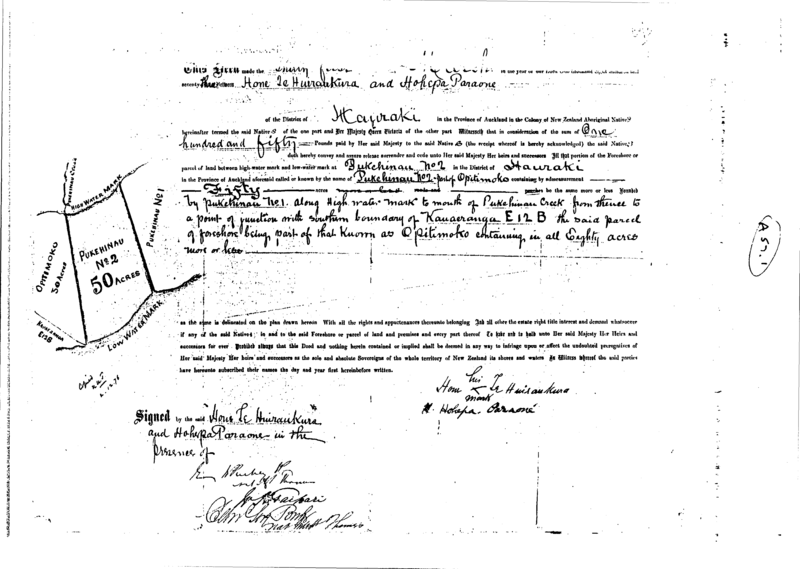 This Deed made the
in the year of our Lord one thousand eight hundred and
seventy three between Hone Te Huiraukura and Hohepa Paraone
of the District of Hauraki in the Province of Auckland in the Colony of New Zealand Aboriginal Natives
hereinafter termed the said Natives of the one part and Her Majesty Queen Victoria of the other part Witnesseth that in consideration of the sum of One
hundred and fifty Pounds paid by Her said Majesty to the said Natives (the receipt whereof is hereby acknowledged) the said Natives
doth hereby convey and assure release surrender and cede unto Her said Majesty Her heirs and successors All that portion of the Foreshore or
parcel of land between high-water mark and low-water mark at Pukehinau No 2 in the District of Hauraki
in the Province of Auckland aforesaid called or known by the name of Pukehinau No 2 part of Opitimoko containing by admeasurement
Fifty acres be the same more or less Bounded
by Pukehinau No 1. along High water mark to mouth of Pukehinau Creek from thence to
a point of junction with southern boundary of Kauaeranga E 12 B the said parcel
of foreshore being part of that known as Opitimoko containing in all Eighty acres
more or less
as the same is delineated on the plan drawn hereon With all the rights and appurtenances thereunto belonging And all other the estate right title interest and demand whatsoever
if any of the said Natives in and to the said Foreshore or parcel of land and premises and every part thereof To have and to hold unto Her said Majesty Her Heirs and
successors for ever Provided always that this Deed and nothing herein contained or implied shall be deemed in any way to infringe upon or affect the undoubted prerogatives of
Her said Majesty Her heirs and successors as the sole and absolute Sovereigns of the whole territory of New Zealand its shores and waters In Witness whereof the said parties
have hereunto subscribed their names the day and year first hereinbefore written.
Hone his x mark Te Huiraukura
Hohepa Paraone
Signed by the said "Hone Te Huiraukura"
and Hohepa Paraone in the
presence of
PUKEHINAU CREEK
HIGH WATER MARK
PUKEHINAU No 1
OPITIMOKO
30 Acres
PUKEHINAU
No 2
50 ACRES
KAUAERANGA
E12B
LOW WATER MARK
A 57.1